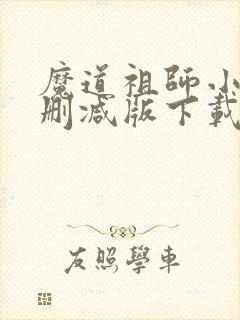 魔道祖師小
刪減版下載
友照學車